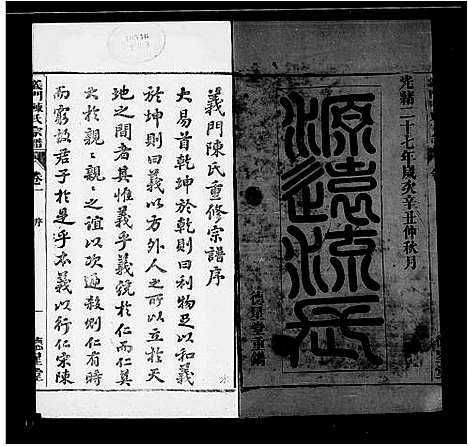 光緒二十七年歲次辛丑仲秋月
源遠流長
德星堂重鐫
義門陳氏重修宗譜序
大易首乾坤於乾則曰利物足以和義
於坤則曰義以方外人之所以立於天
地之間者其惟義乎義統於仁而仁莫
大於親〻親〻之誼以次遞殺則仁有時
而窮故君子於是乎本義以行仁宋陳
義門陳氏宗譜
卷一
序
一
德星堂